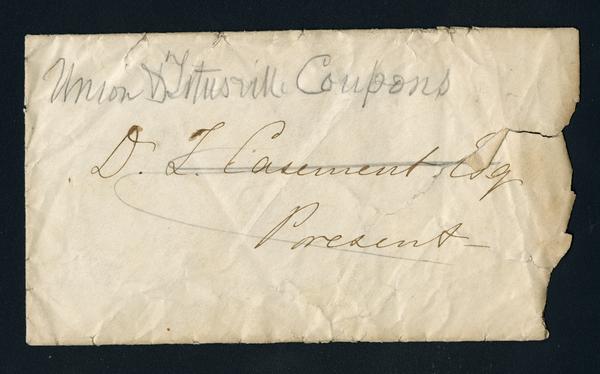 Union & Titusville Coupons
D. T. Casement Esq
Present